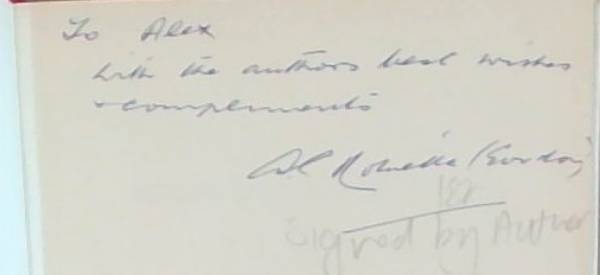 To Alex
with the authors best wishes
+ complements
(Gordon)
1st
Signed by Author